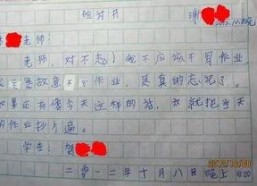 检讨书
谢
老师：
老师，对不起，我不应该不写作业，
是故意不 作业，是真的忘记了。
如果还有像今天这样的话，我就把当天
的作业抄 遍。
学生：
二零一二年十月八日晚上